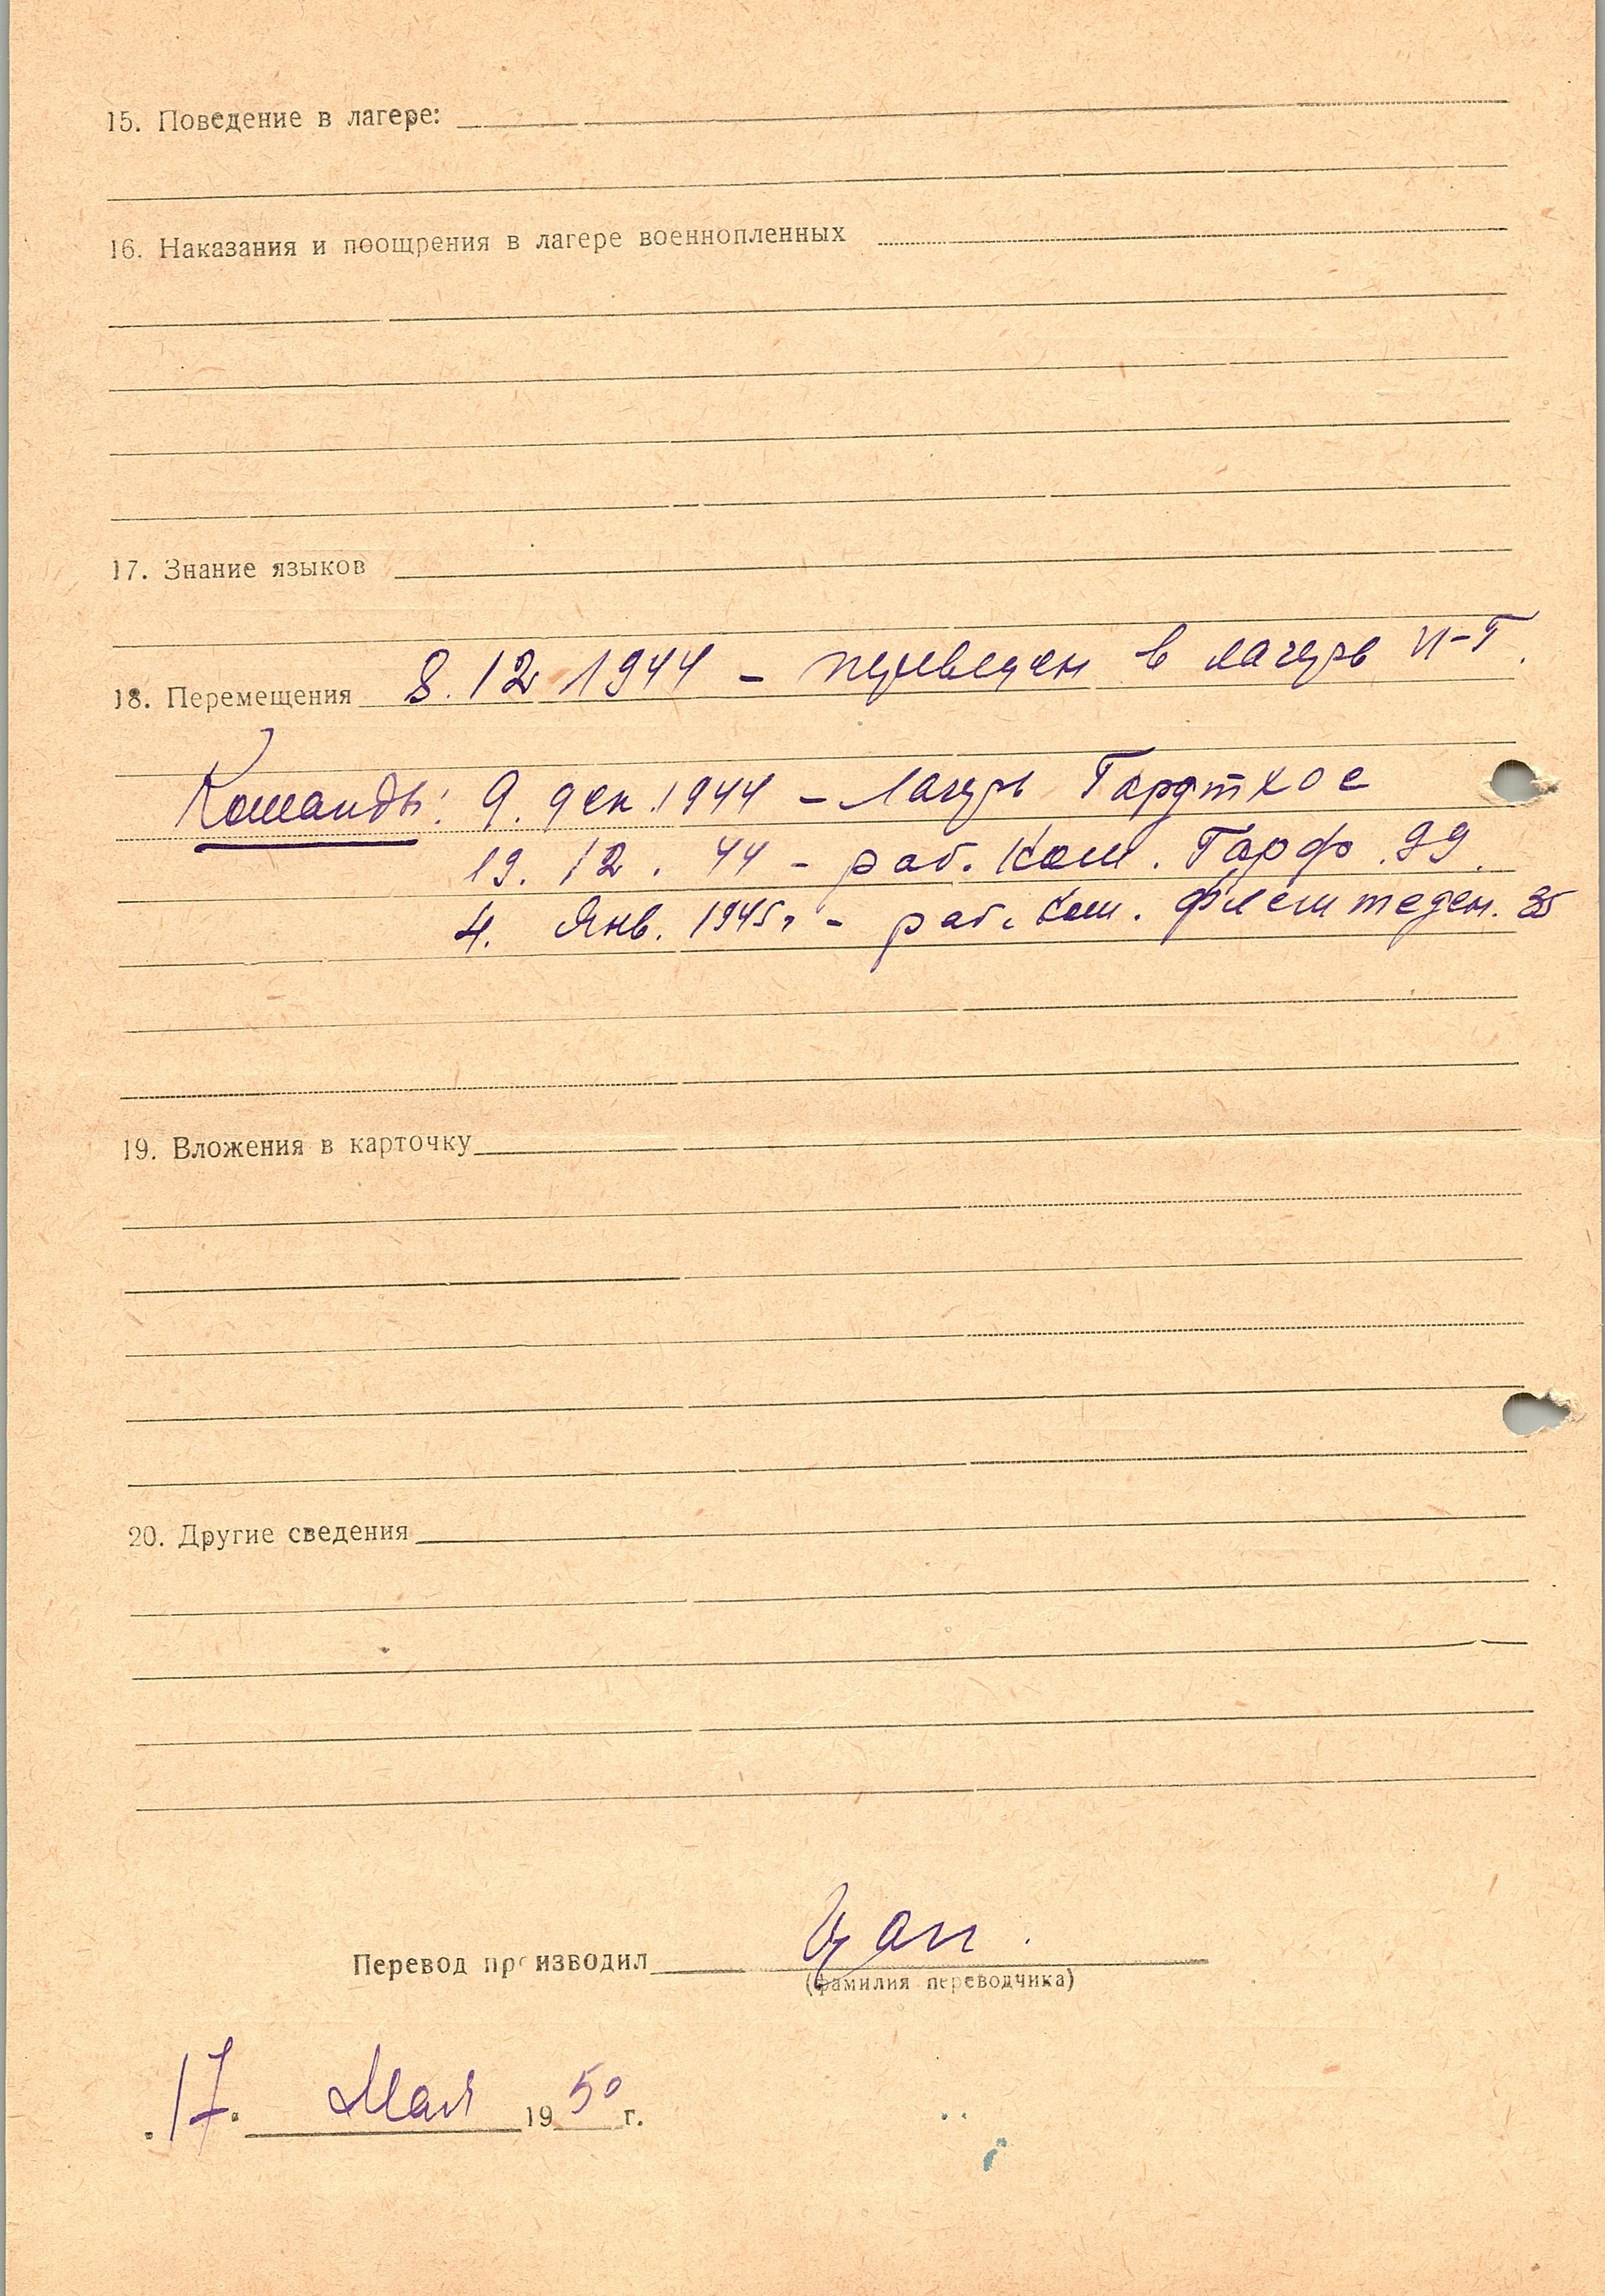 15. Поведение в лагере:
16. Наказания и поощрения в лагере военнопленных
17. Знание языков
18. Перемещения 8.12 1944 – переведен в лагерь II-Г.
Команды: 9. дек. 1944 – Лагерь Гардтхое
19. 12. 44 – раб. Ком. Гарф. 99.
4. Янв. 1945 г – раб. Ком. Флемтеден. 35
19. Вложения в карточку
20. Другие сведения
Перевод производил Цап.
(фамилия переводчика)
17. Мая 1950 г.